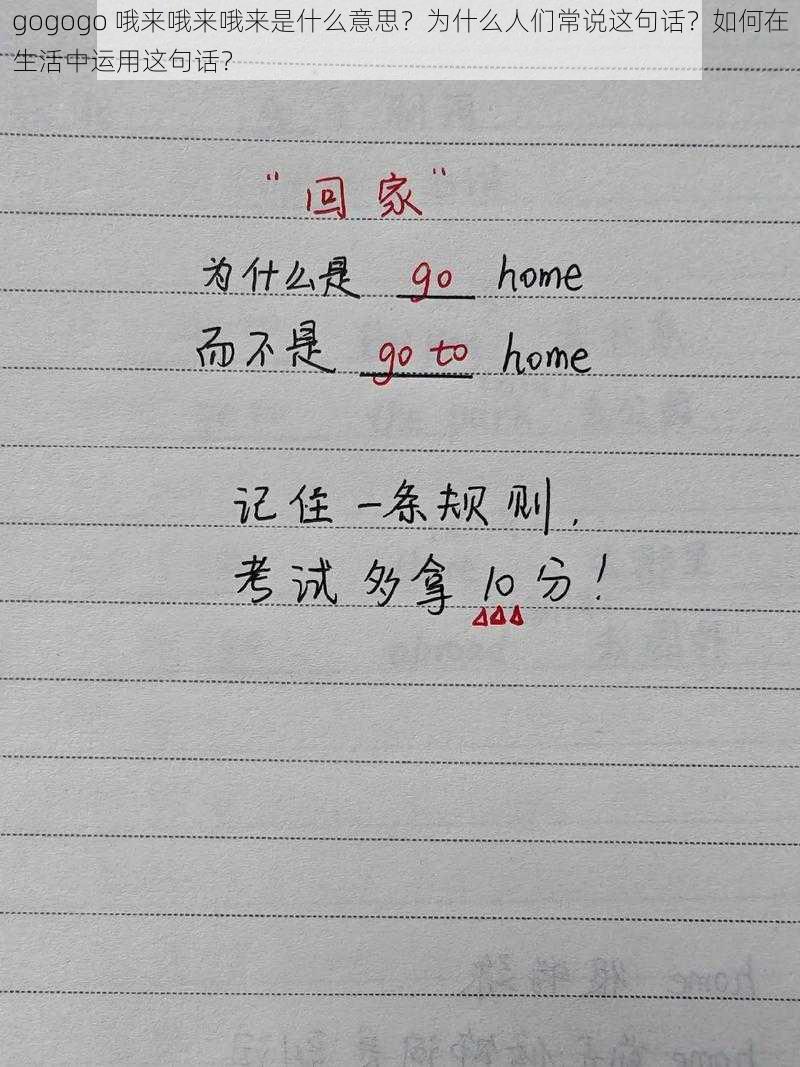 gogogo 哦来哦来哦来是什么意思？为什么人们常说这句话？如何在
生活中运用这句话？
"回家"
为什么是 go home
而不是 go to home
记住一条规则，
考试多拿10分！